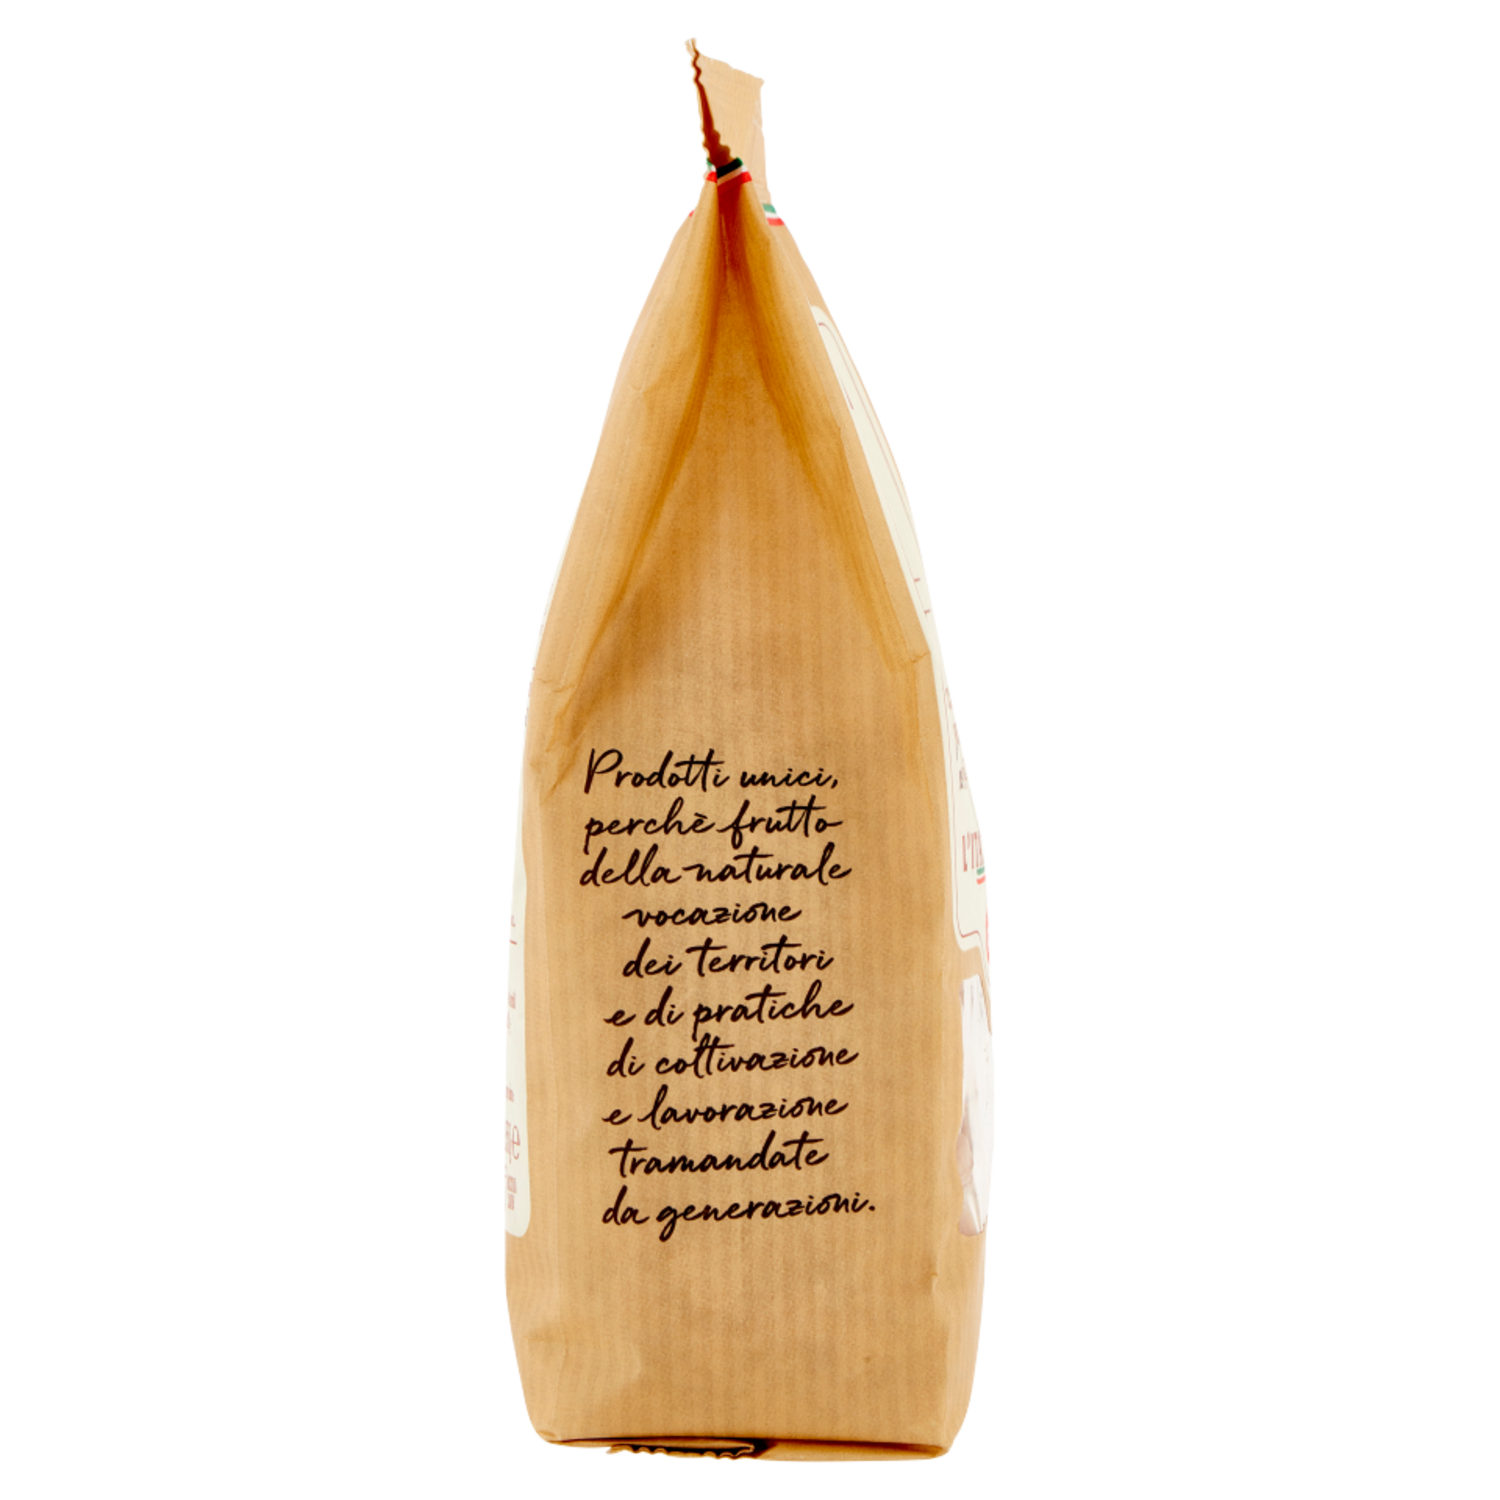 Prodotti unici,
perchè frutto
della naturale
vocazione
dei territori
e di pratiche
di coltivazione
e lavorazione
tramandate
da generazioni.